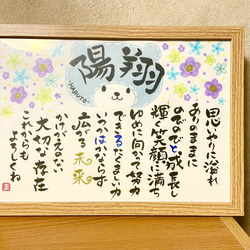 陽翔
HARUTO
思いやりに溢れ
ありのままに
のびのびと成長し
輝く笑顔に満ち
ゆめに向かって努力
できるたくましい力
いつかはかならず
広がる未来
かけがえのない
大切な存在
これからも
よろしくね